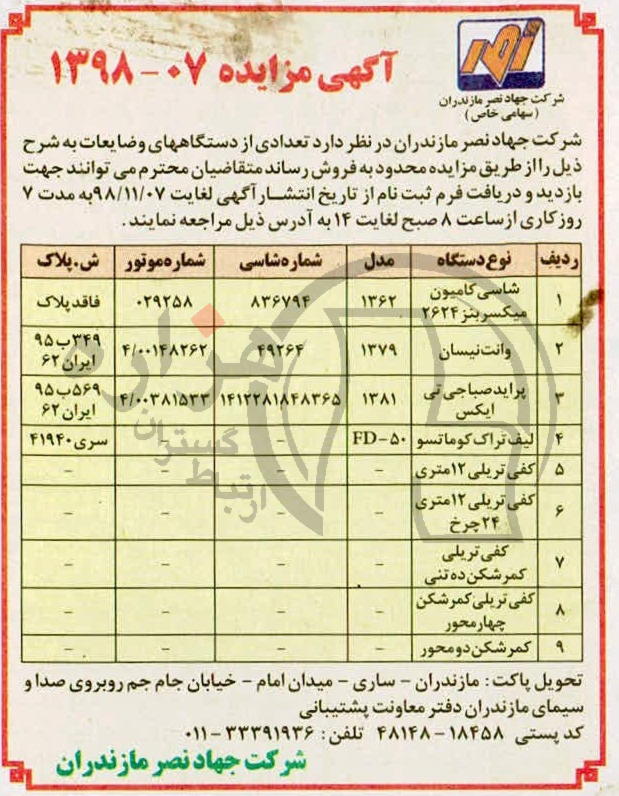 نصر
شرکت جهاد نصر مازندران
(سهامی خاص)
آگهی مزایده ۰۷-۱۳۹۸
شرکت جهاد نصر مازندران در نظر دارد تعدادی از دستگاههای وضایعات به شرح
ذیل را از طریق مزایده محدود به فروش رساند متقاضیان محترم می توانند جهت
بازدید و دریافت فرم ثبت نام از تاریخ انتشار آگهی لغایت ۹۸/۱۱/۰۷ به مدت ۷
روز کاری از ساعت ۸ صبح لغایت ۱۴ به آدرس ذیل مراجعه نمایند.
ردیف نوع دستگاه مدل شماره شاسی شماره موتور ش.پلاک
۱ شاسی کامیون میکسر بنز ۲۶۲۴ ۱۳۶۲ ۸۳۶۷۹۴ ۰۲۹۲۵۸ فاقد پلاک
۲ وانت نیسان ۱۳۷۹ ۴۹۲۶۴ ۴/۰۰۱۴۸۲۶۲ ۳۴۹ب۹۵ ایران ۶۲
۳ پراید صباجی تی ایکس ۱۳۸۱ ۱۴۱۲۲۸۱۸۴۸۳۶۵ ۴/۰۰۳۸۱۵۳۳ ۵۶۹ب۹۵ ایران ۶۲
۴ لیف تراک کوماتسو FD-۵۰ - - سری ۴۱۹۴۰
۵ کفی تریلی ۱۲متری - - - -
۶ کفی تریلی ۱۲متری ۲۴چرخ - - - -
۷ کفی تریلی کمرشکن ده تنی - - - -
۸ کفی تریلی کمرشکن چهارمحور - - - -
۹ کمرشکن دو محور - - - -
هزاره
گستران
ارتباط
تحویل پاکت: مازندران - ساری - میدان امام - خیابان جام جم روبروی صدا و
سیمای مازندران دفتر معاونت پشتیبانی
کد پستی ۱۸۴۵۸-۴۸۱۴۸ تلفن: ۳۳۳۹۱۹۳۶-۰۱۱
شرکت جهاد نصر مازندران